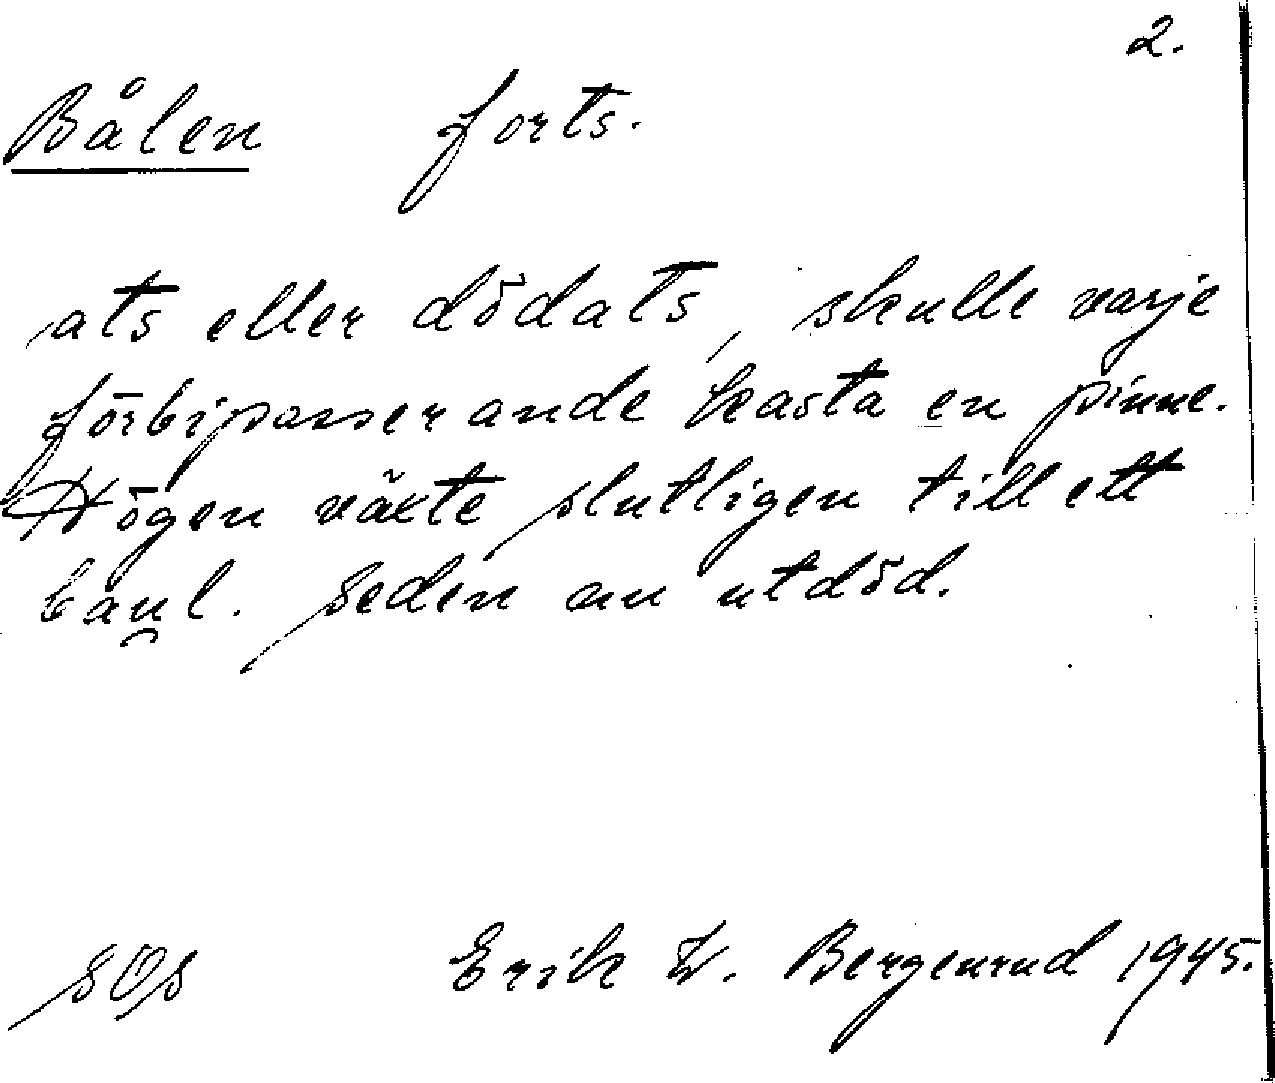 2.
Bålen forts.
ats eller dödats, skulle varje
förbipasserande kasta en pinne.
Högen växte slutligen till ett
baul. Seden nu utdöd.
SOS Erik W. Bergenrud 1945.